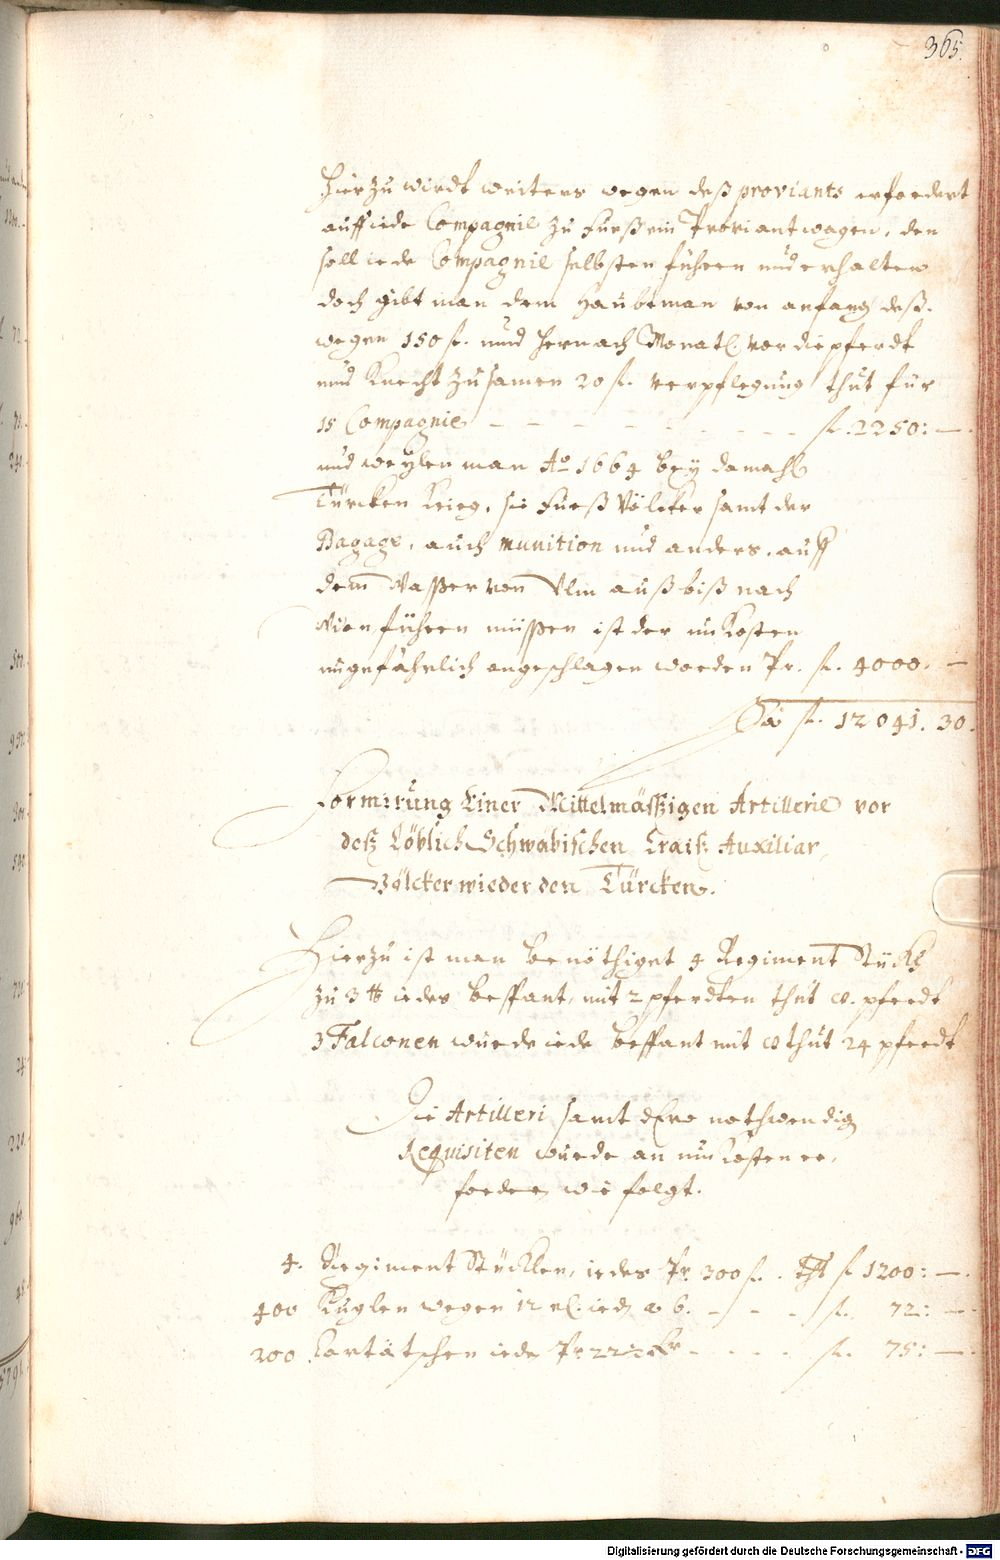 365.
Hierzu wirdt weiters wegen deß proviants erfordert
auff iede Compagnie zu Fueß ein Proviantwagen, den
soll iede Compagnie selbsten führen und erhalten
doch gibt man dem Haubtman von anfang deß-
wegen 150 fl. und hernach Monatl. vor die pferdt
und Knecht zusamen 20 fl. verpflegung thut für
15 Compagnie - - - - - - - - fl. 2250: —.
und weylen man Ao 1664 bey damahl
Türcken Krieg, die Fueß Völcker samt der
Bagage, auch munition und anders, auff
dem Wasser von Ulm auß biß nach
Wien führen müssen ist der unkosten
ungefährlich angeschlagen worden Pr. fl. 4000. —
Sa fl. 12041. 30.
Formirung Einer Mittelmässigen Artillerie vor
deß Löblich Schwäbischen Craiß Auxiliar
Völcker wieder den Türcken.
Hierzu ist man benöthiget 4 Regiment Stückh
zu 3 ℔ iedes bespant, mit 2 pferdten thut 8. pferdt
3 Falconen wurde iede bespant mit 8 thut 24 pferdt
Die Artilleri samt dero nothwendig
Requisiten wurde an unkosten er-
fordern wie folgt.
4. Regiment Stücklen, iedes Pr 300 fl. tht fl 1200: —.
400 Kuglen wegen 12 ied a 6. - - - fl. 72: —.
200 Cartätschen iede Pr 22½ Kr - - - - fl. 75: —.
Digitalisierung gefördert durch die Deutsche Forschungsgemeinschaft - DFG